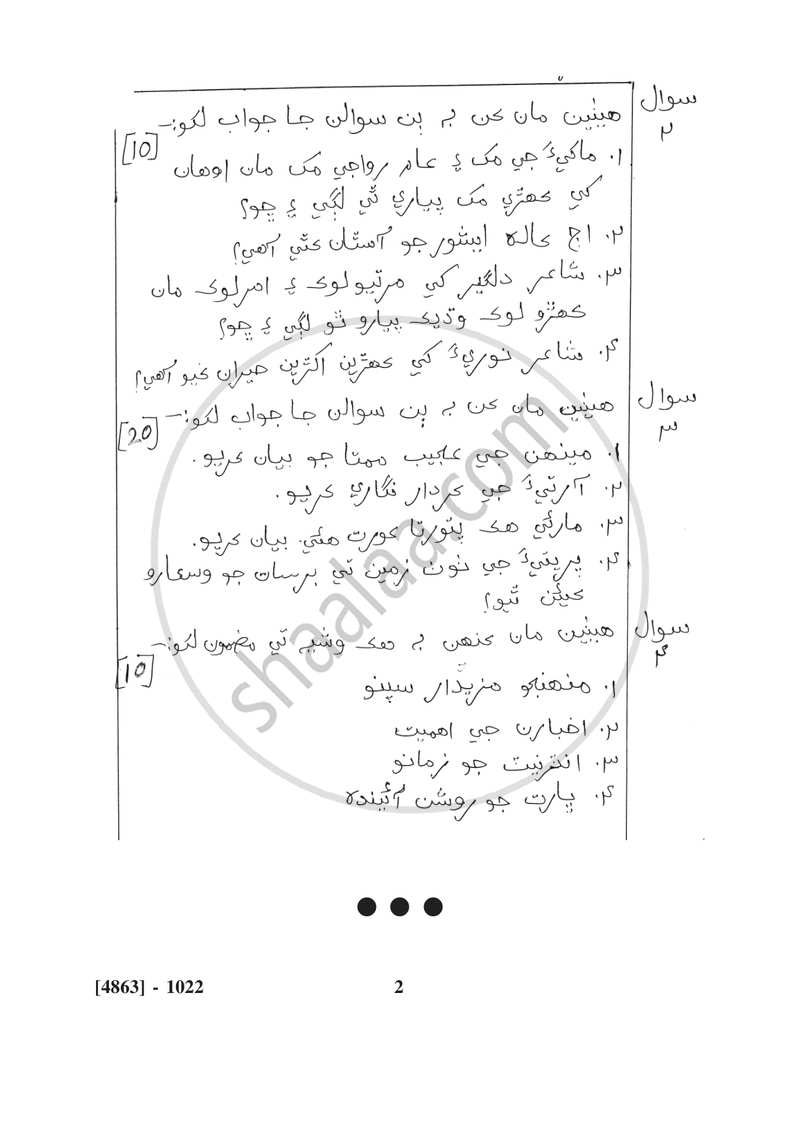 سوال ٢
هيٺين مان ڪن بہ ٻن سوالن جا جواب لکو:-
[10]
١. ماکيءَ جي مک ۽ عام رواجي مک مان اوهان
کي ڪهڙي مک پياري ٿي لڳي ۽ ڇو؟
٢. اڄ ڪالهہ ايشور جو آستان ڪٿي آهي؟
٣. شاعر دلگير کي مرتيولوڪ ۽ امرلوڪ مان
ڪهڙو لوڪ وڌيڪ پيارو ٿو لڳي ۽ ڇو؟
٤. شاعر نوريءَ کي ڪهڙين اکڙين حيران ڪيو آهي؟
سوال ٣
هيٺين مان ڪن بہ ٻن سوالن جا جواب لکو:-
[20]
١. مينهن جي عجيب ممتا جو بيان ڪريو.
٢. آرتيءَ جي ڪردار نگاري ڪريو.
٣. مارئي هڪ پتورتا عورت هئي. بيان ڪريو.
٤. پريتيءَ جي نون زمين تي برسات جو وسڪارو
ڪيئن ٿيو؟
سوال ٤
هيٺين مان ڪنهن بہ هڪ وشيہ تي مضمون لکو:-
[10]
١. منهنجو مزيدار سپنو
٢. اخبارن جي اهميت
٣. انٽرنيٽ جو زمانو
٤. ڀارت جو روشن آئينده
shaalaa.com
[4863] - 1022
2